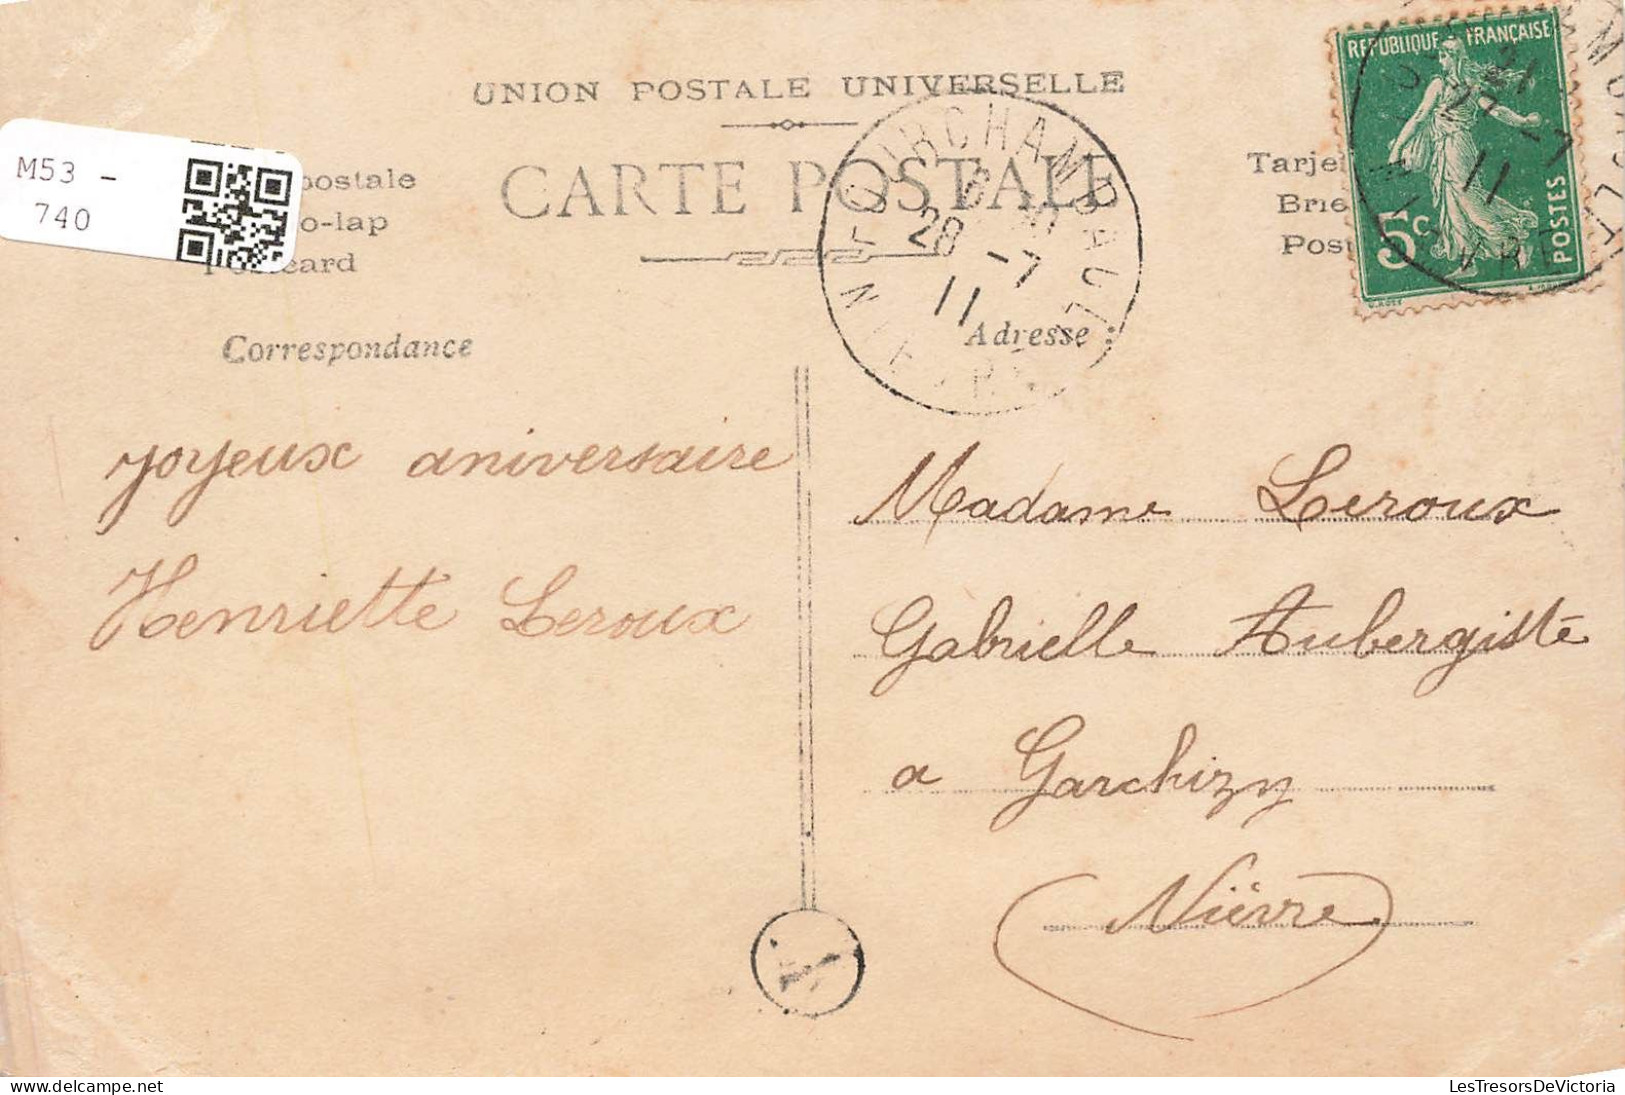 UNION POSTALE UNIVERSELLE
CARTE POSTALE
M53 -
740
postale
o-lap
card
Tarje
Brie
Post
REPUBLIQUE FRANÇAISE
5c
POSTES
28 -7
11
NIEVRE
Correspondance
Adresse
joyeux aniversaire
Henriette Leroux
Madame Leroux
Gabrielle Aubergiste
a Garchizy
Nièvre
LesTresorsDeVictoria